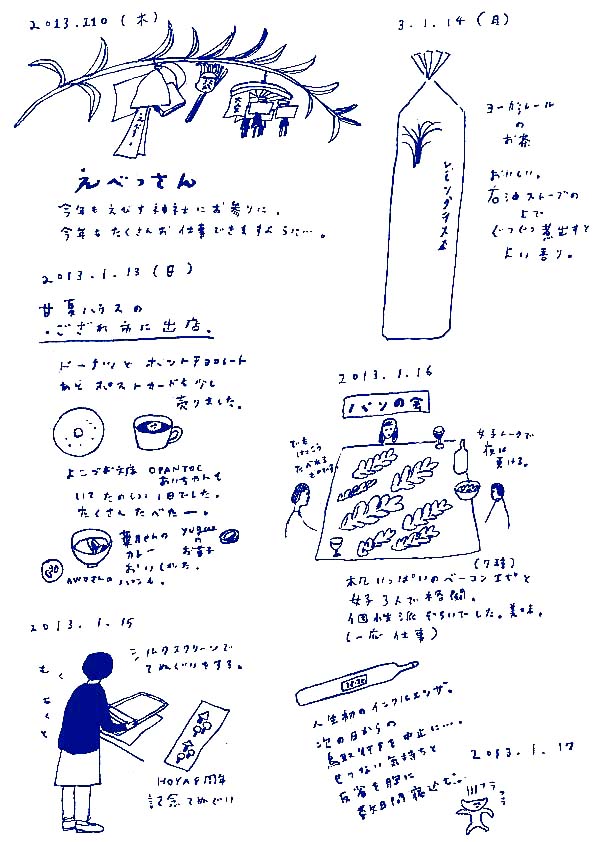 2013.1.10（木）
えべっさん
今年もえびす神社にお参りに。
今年もたくさんお仕事できますように…。
2013.1.13（日）
甘夏ハウスの
ござれ市に出店。
ドーナツとホットチョコレート
あとポストカードを少し
売りました。
OPANTOC
いてたのしい1日でした。
たくさんたべたー。
カレー
yugue
の
お菓子
おいしかった。
2013.1.15
シルクスクリーンで
てぬぐいをする。
むくむくと
HOYA8周年
記念てぬぐい
3.1.14（月）
レモングラスティ
ヨーガンレール
の
お茶
おいしい。
石油ストーブの
上で
ぐつぐつ煮出すと
よい香り。
2013.1.16
パンの会
でも
けっこう
たべれる
女子トークで
夜は
更ける。
（7種）
机いっぱいのベーコンエピと
女子3人で格闘。
個性派ぞろいでした。美味。
（一応仕事）
38.38
人生初のインフルエンザ。
次の日からの
鳥取行きを中止に…。
せつない気持ちと
反省を胸に
数日間寝込む…
2013.1.17
フラフラ